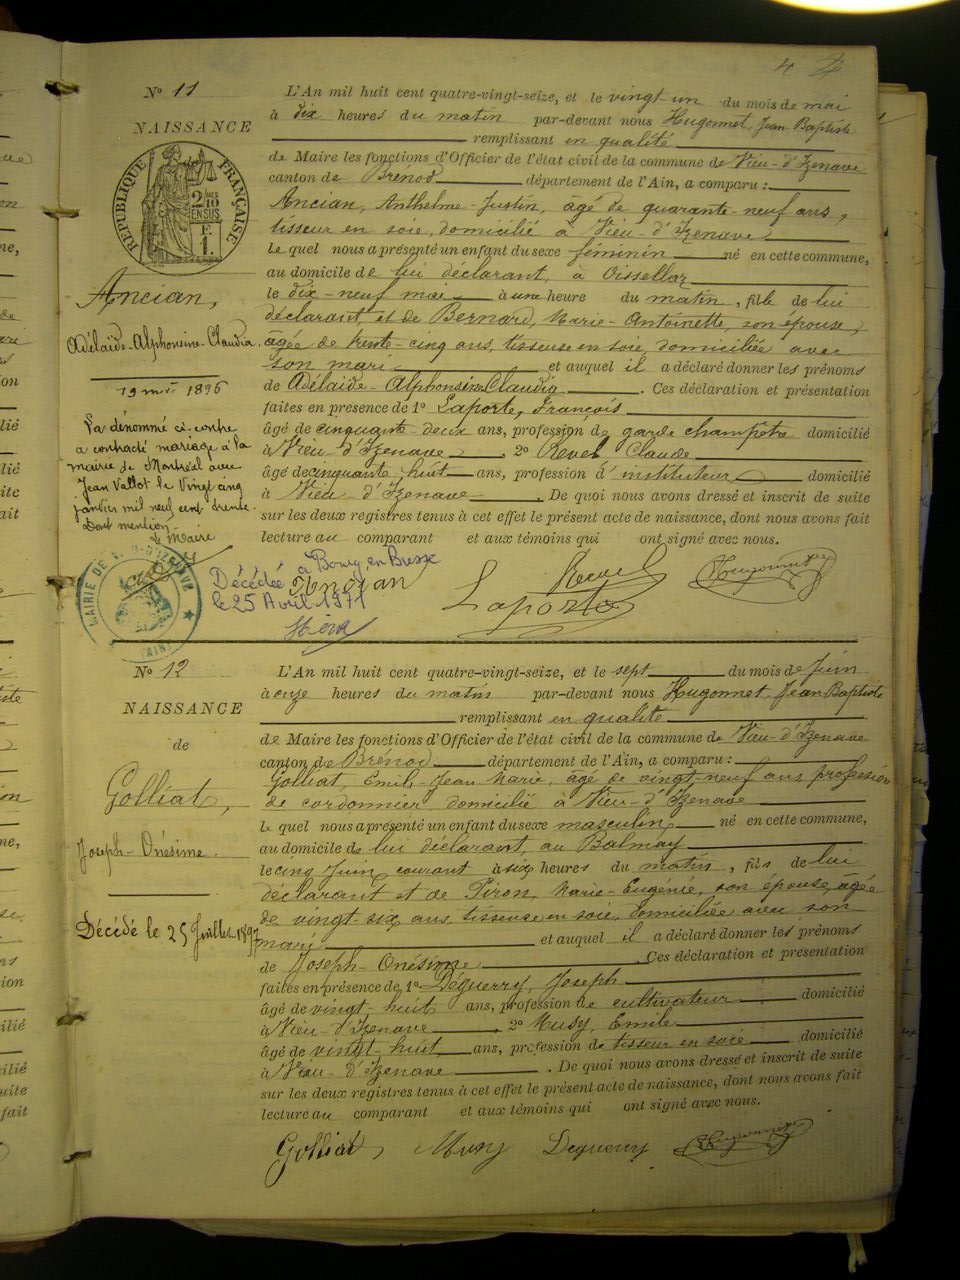 4
N° 11
NAISSANCE
RÉPUBLIQUE FRANÇAISE
2/10MES
EN SUS
F.
1.
Ancian,
Adélaïde-Alphonsine-Claudia.
19 mai 1896
La dénommé ci-contre
a contracté mariage à la
mairie de Montréal avec
Jean Vallot le Vingt cinq
janvier mil neuf cent trente.
Dont mention
Le Maire
MAIRIE DE VIEU-D'IZENAVE
(AIN)
L'An mil huit cent quatre-vingt-seize, et le vingt-un du mois de mai
à dix heures du matin par-devant nous Hugonnet, Jean-Baptiste
remplissant en qualité
de Maire les fonctions d'Officier de l'état civil de la commune de Vieu-d'Izenave
canton de Brénod département de l'Ain, a comparu :
Ancian, Anthelme-Justin, âgé de quarante-neuf ans,
tisseur en soie, domicilié à Vieu-d'Izenave
le quel nous a présenté un enfant du sexe féminin né en cette commune,
au domicile de lui déclarant, à Oissellaz
le dix-neuf mai à une heure du matin, fille de lui
déclarant, et de Bernard, Marie-Antoinette, son épouse,
âgée de trente-cinq ans, tisseuse en soie, domiciliée avec
son mari et auquel il a déclaré donner les prénoms
de Adélaïde-Alphonsine Claudia. Ces déclaration et présentation
faites en présence de 1° Laporte, François
âgé de cinquante-deux ans, profession de garde champêtre domicilié
à Vieu-d'Izenave. 2° Revel Claude
âgé de cinquante huit ans, profession d'instituteur domicilié
à Vieu-d'Izenave. De quoi nous avons dressé et inscrit de suite
sur les deux registres tenus à cet effet le présent acte de naissance, dont nous avons fait
lecture au comparant et aux témoins qui ont signé avec nous.
Décédée à Bourg en Bresse
le 25 Avril 1971
Ancian
Laporte
Revel
Hugonnet
N° 12
NAISSANCE
de
Golliat,
Joseph-Onésime.
Décédé le 25 Juillet 1897
L'An mil huit cent quatre-vingt-seize, et le sept du mois de Juin
à onze heures du matin par-devant nous Hugonnet, Jean Baptiste
remplissant en qualité
de Maire les fonctions d'Officier de l'état civil de la commune de Vieu-d'Izenave
canton de Brénod département de l'Ain, a comparu :
Golliat, Emile-Jean Marie, âgé de vingt-neuf ans profession
de cordonnier, domicilié à Vieu-d'Izenave
le quel nous a présenté un enfant du sexe masculin né en cette commune,
au domicile de lui déclarant, au Balmay
le cinq Juin courant à six heures du matin, fils de lui
déclarant et de Piron, Marie-Eugénie, son épouse, âgée
de vingt-six ans, tisseuse en soie, domiciliée avec son
mari et auquel il a déclaré donner les prénoms
de Joseph-Onésime. Ces déclaration et présentation
faites en présence de 1° Déguerry, Joseph
âgé de vingt-huit ans, profession de cultivateur domicilié
à Vieu-d'Izenave. 2° Musy, Emile
âgé de vingt-huit ans, profession de tisseur en soie domicilié
à Vieu-d'Izenave. De quoi nous avons dressé et inscrit de suite
sur les deux registres tenus à cet effet le présent acte de naissance, dont nous avons fait
lecture au comparant et aux témoins qui ont signé avec nous.
Golliat, Musy Deguerry Hugonnet